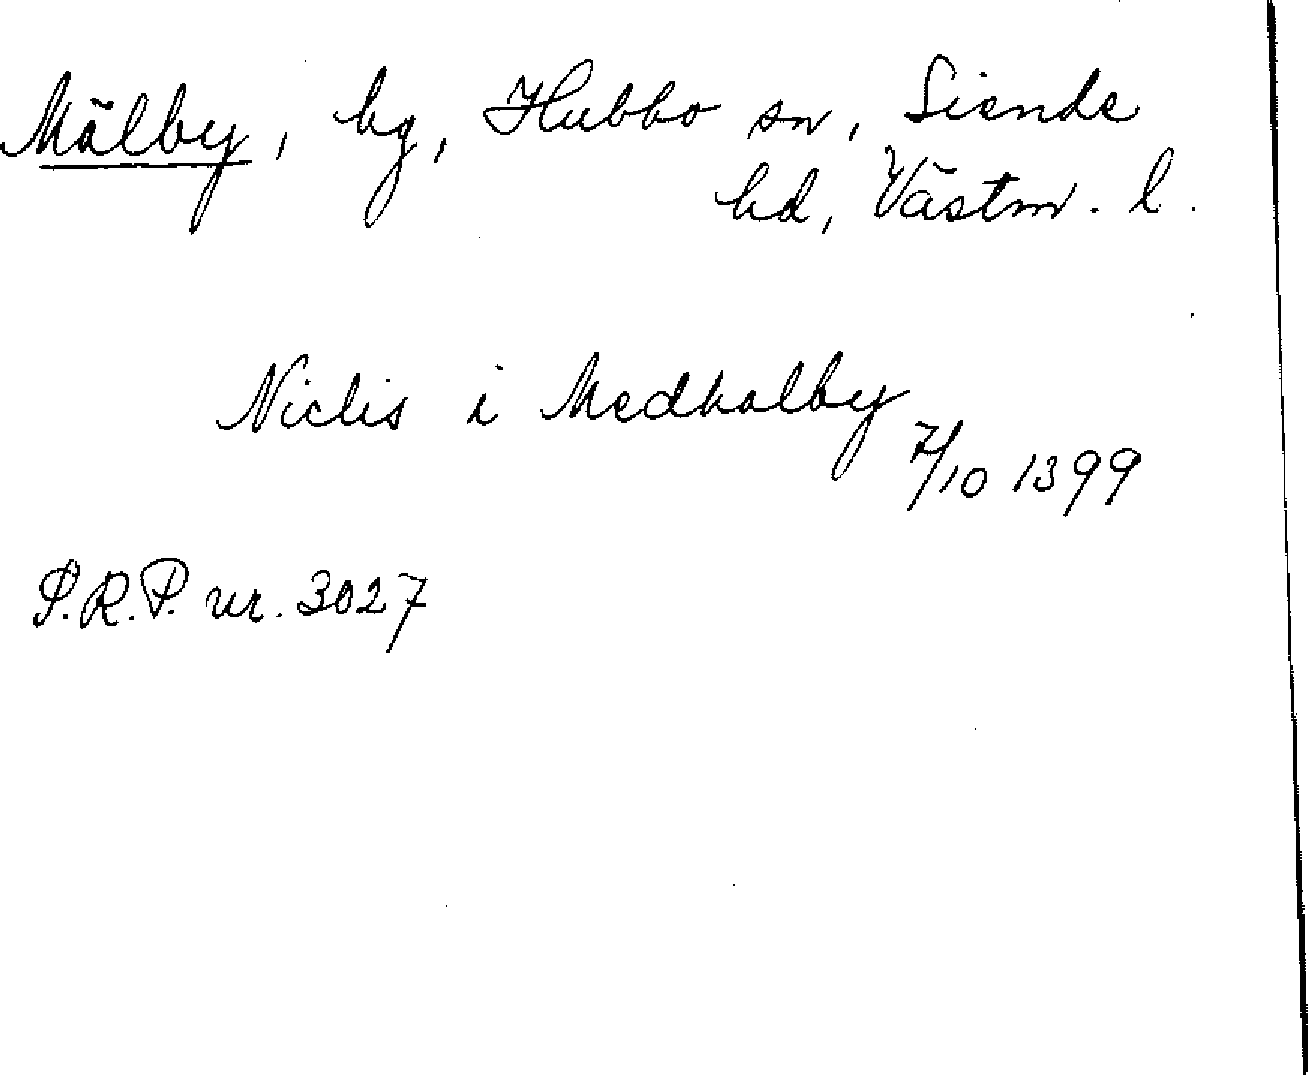 Mälby, hg, Hubbo sn, Siende
hd, Västm. l.
Niclis i Medhalby
7/10 1399
S.R.P. nr. 3027